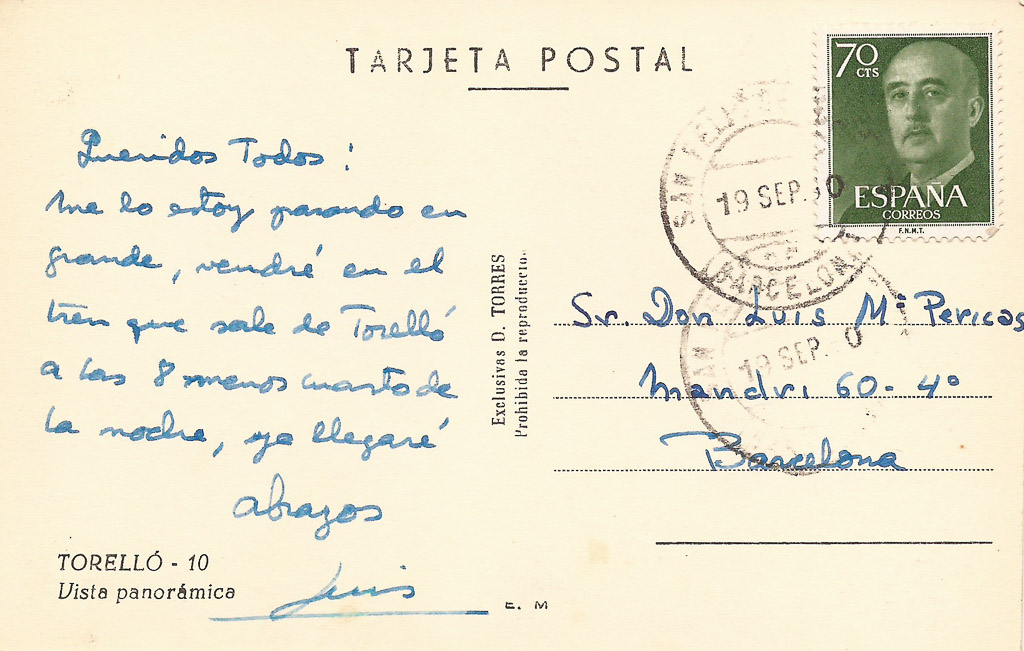 TARJETA POSTAL
Queridos Todos:
me lo estoy pasando en
grande, vendré en el
tren que sale de Torelló
a las 8 menos cuarto de
la noche, ya llegaré
abrazos
Luis
TORELLÓ - 10
Vista panorámica
E. M
Exclusivas D. TORRES
Prohibida la reproducción.
70 CTS
ESPAÑA
CORREOS
F.N.M.T.
SAN
19 SEP. 0
(BARCELONA
19 SEP. 0
Sr. Don Luis Mª Pericas
Mandri 60-4º
Barcelona